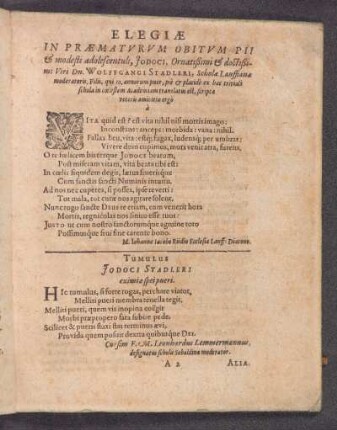 ELEGIÆ
IN PRÆMATVRVM OBITVM PII
& modesti adolescentuli, JODOCI, Ornatissimi & doctissi-
mi Viri Dn. WOLFFGANGI STADLERI, Scholæ Lauffianæ
moderatoris, Filii, qui 10. annorum puer, piè & placidè ex hac terrestri
schola in cœlestem Academiam translatus est, scriptæ
amicitiæ ergò
à
VIta quid est? est vita nihil nisi mortis imago;
Inconstans: anceps: morbida: vana: nihil.
Fallax heu, vita fugit, ludensq; per umbras:
Vivere dum cupimus, mors venit atra, furens.
O te felicem JODOCE beatum,
Post miseram vitam, vita beata tibi est:
In cœlis siquidem degis, lætus
Cum sanctis sancti Numinis intuitu.
Ad nos nec cuperes, si posses, ipse reverti:
Tot mala, tot cum nos agitare solent.
Nunc ergo sancte Deus te etiam, cum venerit hora
Mortis, regnicolas nos sinito esse tuos:
JUSTO ut cum nostro sanctorumque agmine toto
Possimus sine fine carente bono.
M. Iohanne Iacobo Ecclesiæ Lauff. Diacono.
TUMULUS
JODOCI STADLERI
eximiæ spei pueri.
HIc tumulus, si forte rogas, perchare viator,
Melliti pueri membra tenella tegit,
Melliti pueri, quem vis mopina
Morbi præpropero fata subire pede.
Scilicet & pueris fluxi stat terminus ævi,
Provida quem posuit dextra quibusque Dei.
M. Leonhardus Lemmermannus,
designatus scholæ moderator.
A 2 ALIA.